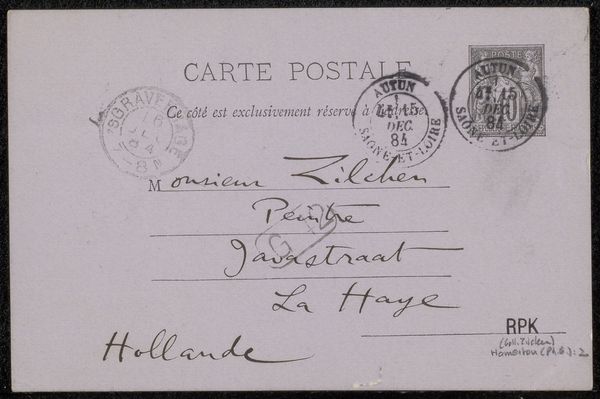 CARTE POSTALE
Ce côté est exclusivement réservé à l'adresse.
POSTE
10
AUTUN
15
DEC.
84
SAONE-ET-LOIRE
AUTUN
15
DEC.
84
SAONE-ET-LOIRE
'SGRAVENHAGE
Monsieur Zilcken
Peintre
Javastraat
La Haye
Hollande
RPK
(Coll. Zilcken)
Hamerton (Ph.G.): 2